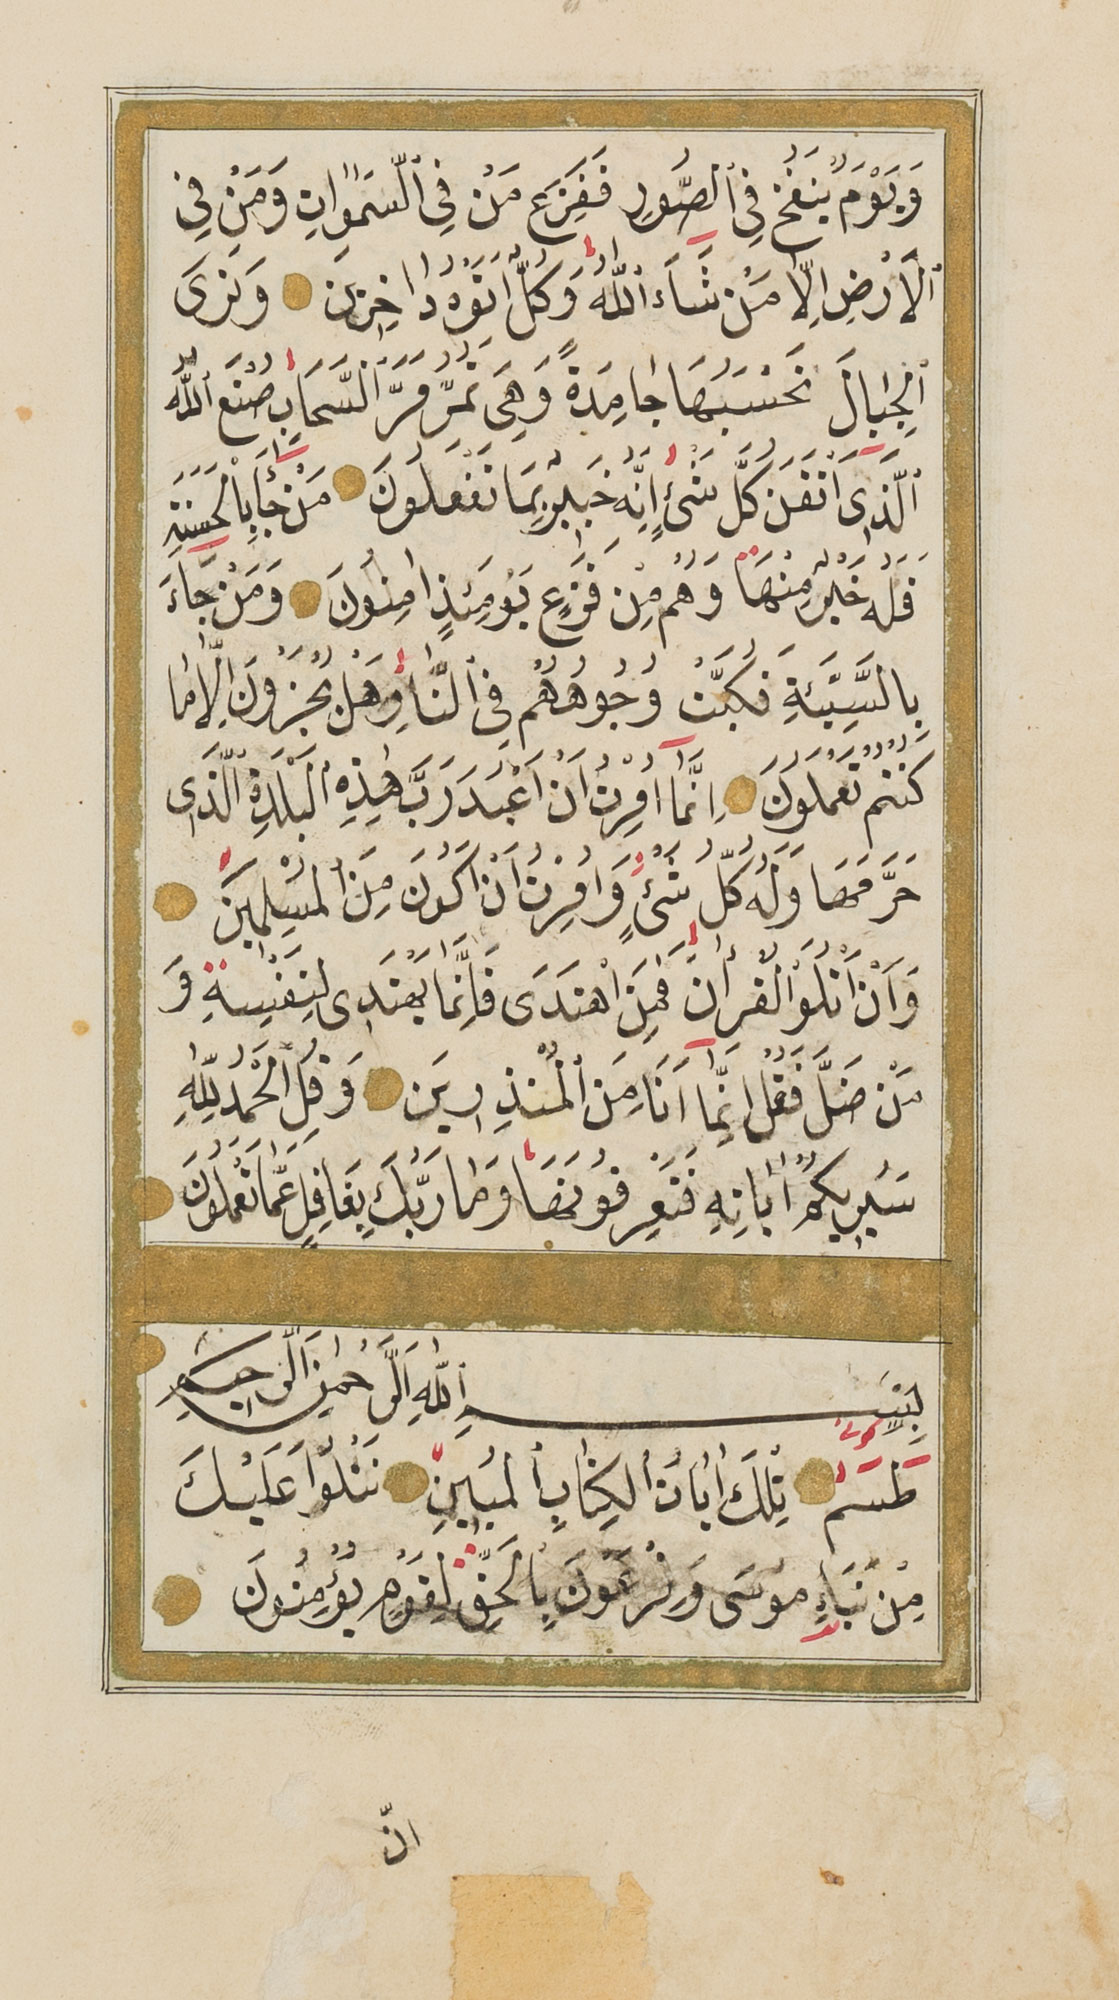 وَيَوْمَ يُنْفَخُ فِي الصُّورِ فَفَزِعَ مَنْ فِي السَّمٰوَاتِ وَمَنْ فِي
الْاَرْضِ اِلَّا مَنْ شَاءَ اللّٰهُ وَكُلٌّ اَتَوْهُ دَاخِرِينَ وَتَرَى
الْجِبَالَ تَحْسَبُهَا جَامِدَةً وَهِيَ تَمُرُّ مَرَّ السَّحَابِ صُنْعَ اللّٰهِ
الَّذِى اَتْقَنَ كُلَّ شَىْءٍ اِنَّهُ خَبِيرٌ بِمَا تَفْعَلُونَ مَنْ جَاءَ بِالْحَسَنَةِ
فَلَهُ خَيْرٌ مِنْهَا وَهُمْ مِنْ فَزَعٍ يَوْمَئِذٍ اٰمِنُونَ وَمَنْ جَاءَ
بِالسَّيِّئَةِ فَكُبَّتْ وُجُوهُهُمْ فِى النَّارِ هَلْ تُجْزَوْنَ اِلَّا مَا
كُنْتُمْ تَعْمَلُونَ اِنَّمَا اُمِرْتُ اَنْ اَعْبُدَ رَبَّ هٰذِهِ الْبَلْدَةِ الَّذِى
حَرَّمَهَا وَلَهُ كُلُّ شَىْءٍ وَاُمِرْتُ اَنْ اَكُونَ مِنَ الْمُسْلِمِينَ
وَاَنْ اَتْلُوَ الْقُرْاٰنَ فَمَنِ اهْتَدٰى فَاِنَّمَا يَهْتَدِى لِنَفْسِهِ وَ
مَنْ ضَلَّ فَقُلْ اِنَّمَا اَنَا مِنَ الْمُنْذِرِينَ وَقُلِ الْحَمْدُ لِلّٰهِ
سَيُرِيكُمْ اٰيَاتِهِ فَتَعْرِفُونَهَا وَمَا رَبُّكَ بِغَافِلٍ عَمَّا تَعْمَلُونَ
بِسْمِ اللّٰهِ الرَّحْمٰنِ الرَّحِيمِ
طٰسٓمٓ تِلْكَ اٰيَاتُ الْكِتَابِ الْمُبِينِ نَتْلُوا عَلَيْكَ
مِنْ نَبَاءِ مُوسٰى وَفِرْعَوْنَ بِالْحَقِّ لِقَوْمٍ يُؤْمِنُونَ
انّ